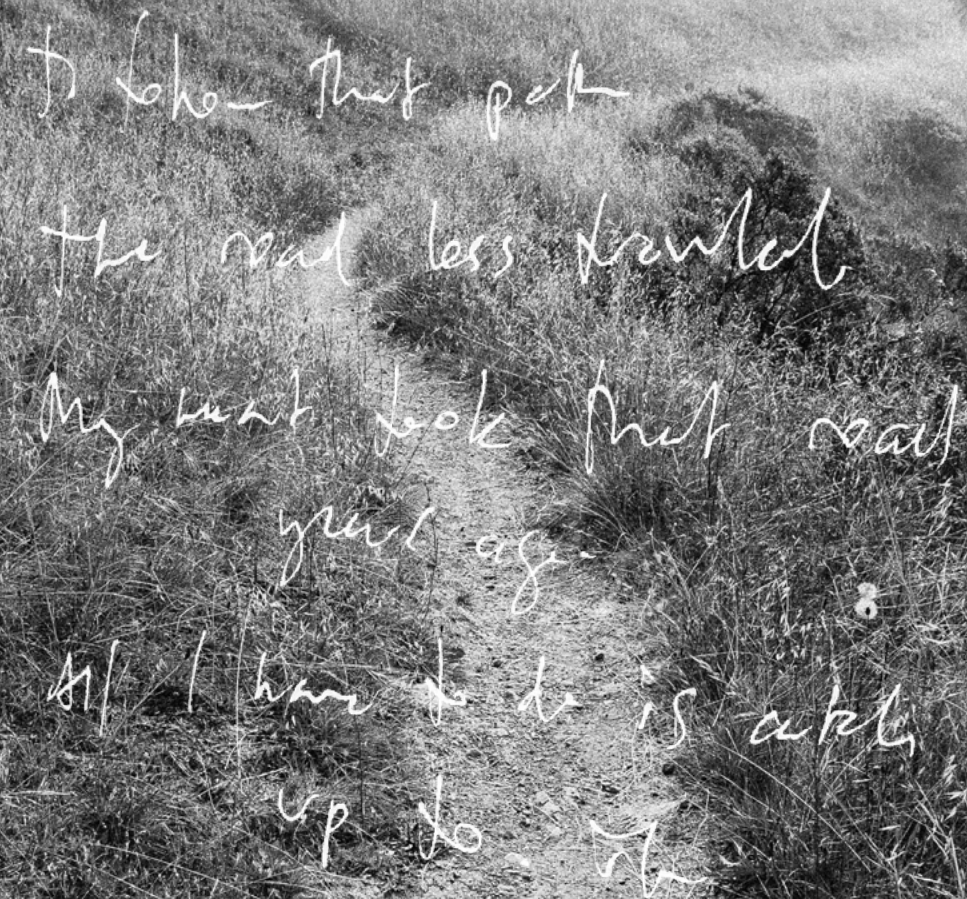 To that path
The road less traveled
My took that road
years ago
All I have to do is catch
up to